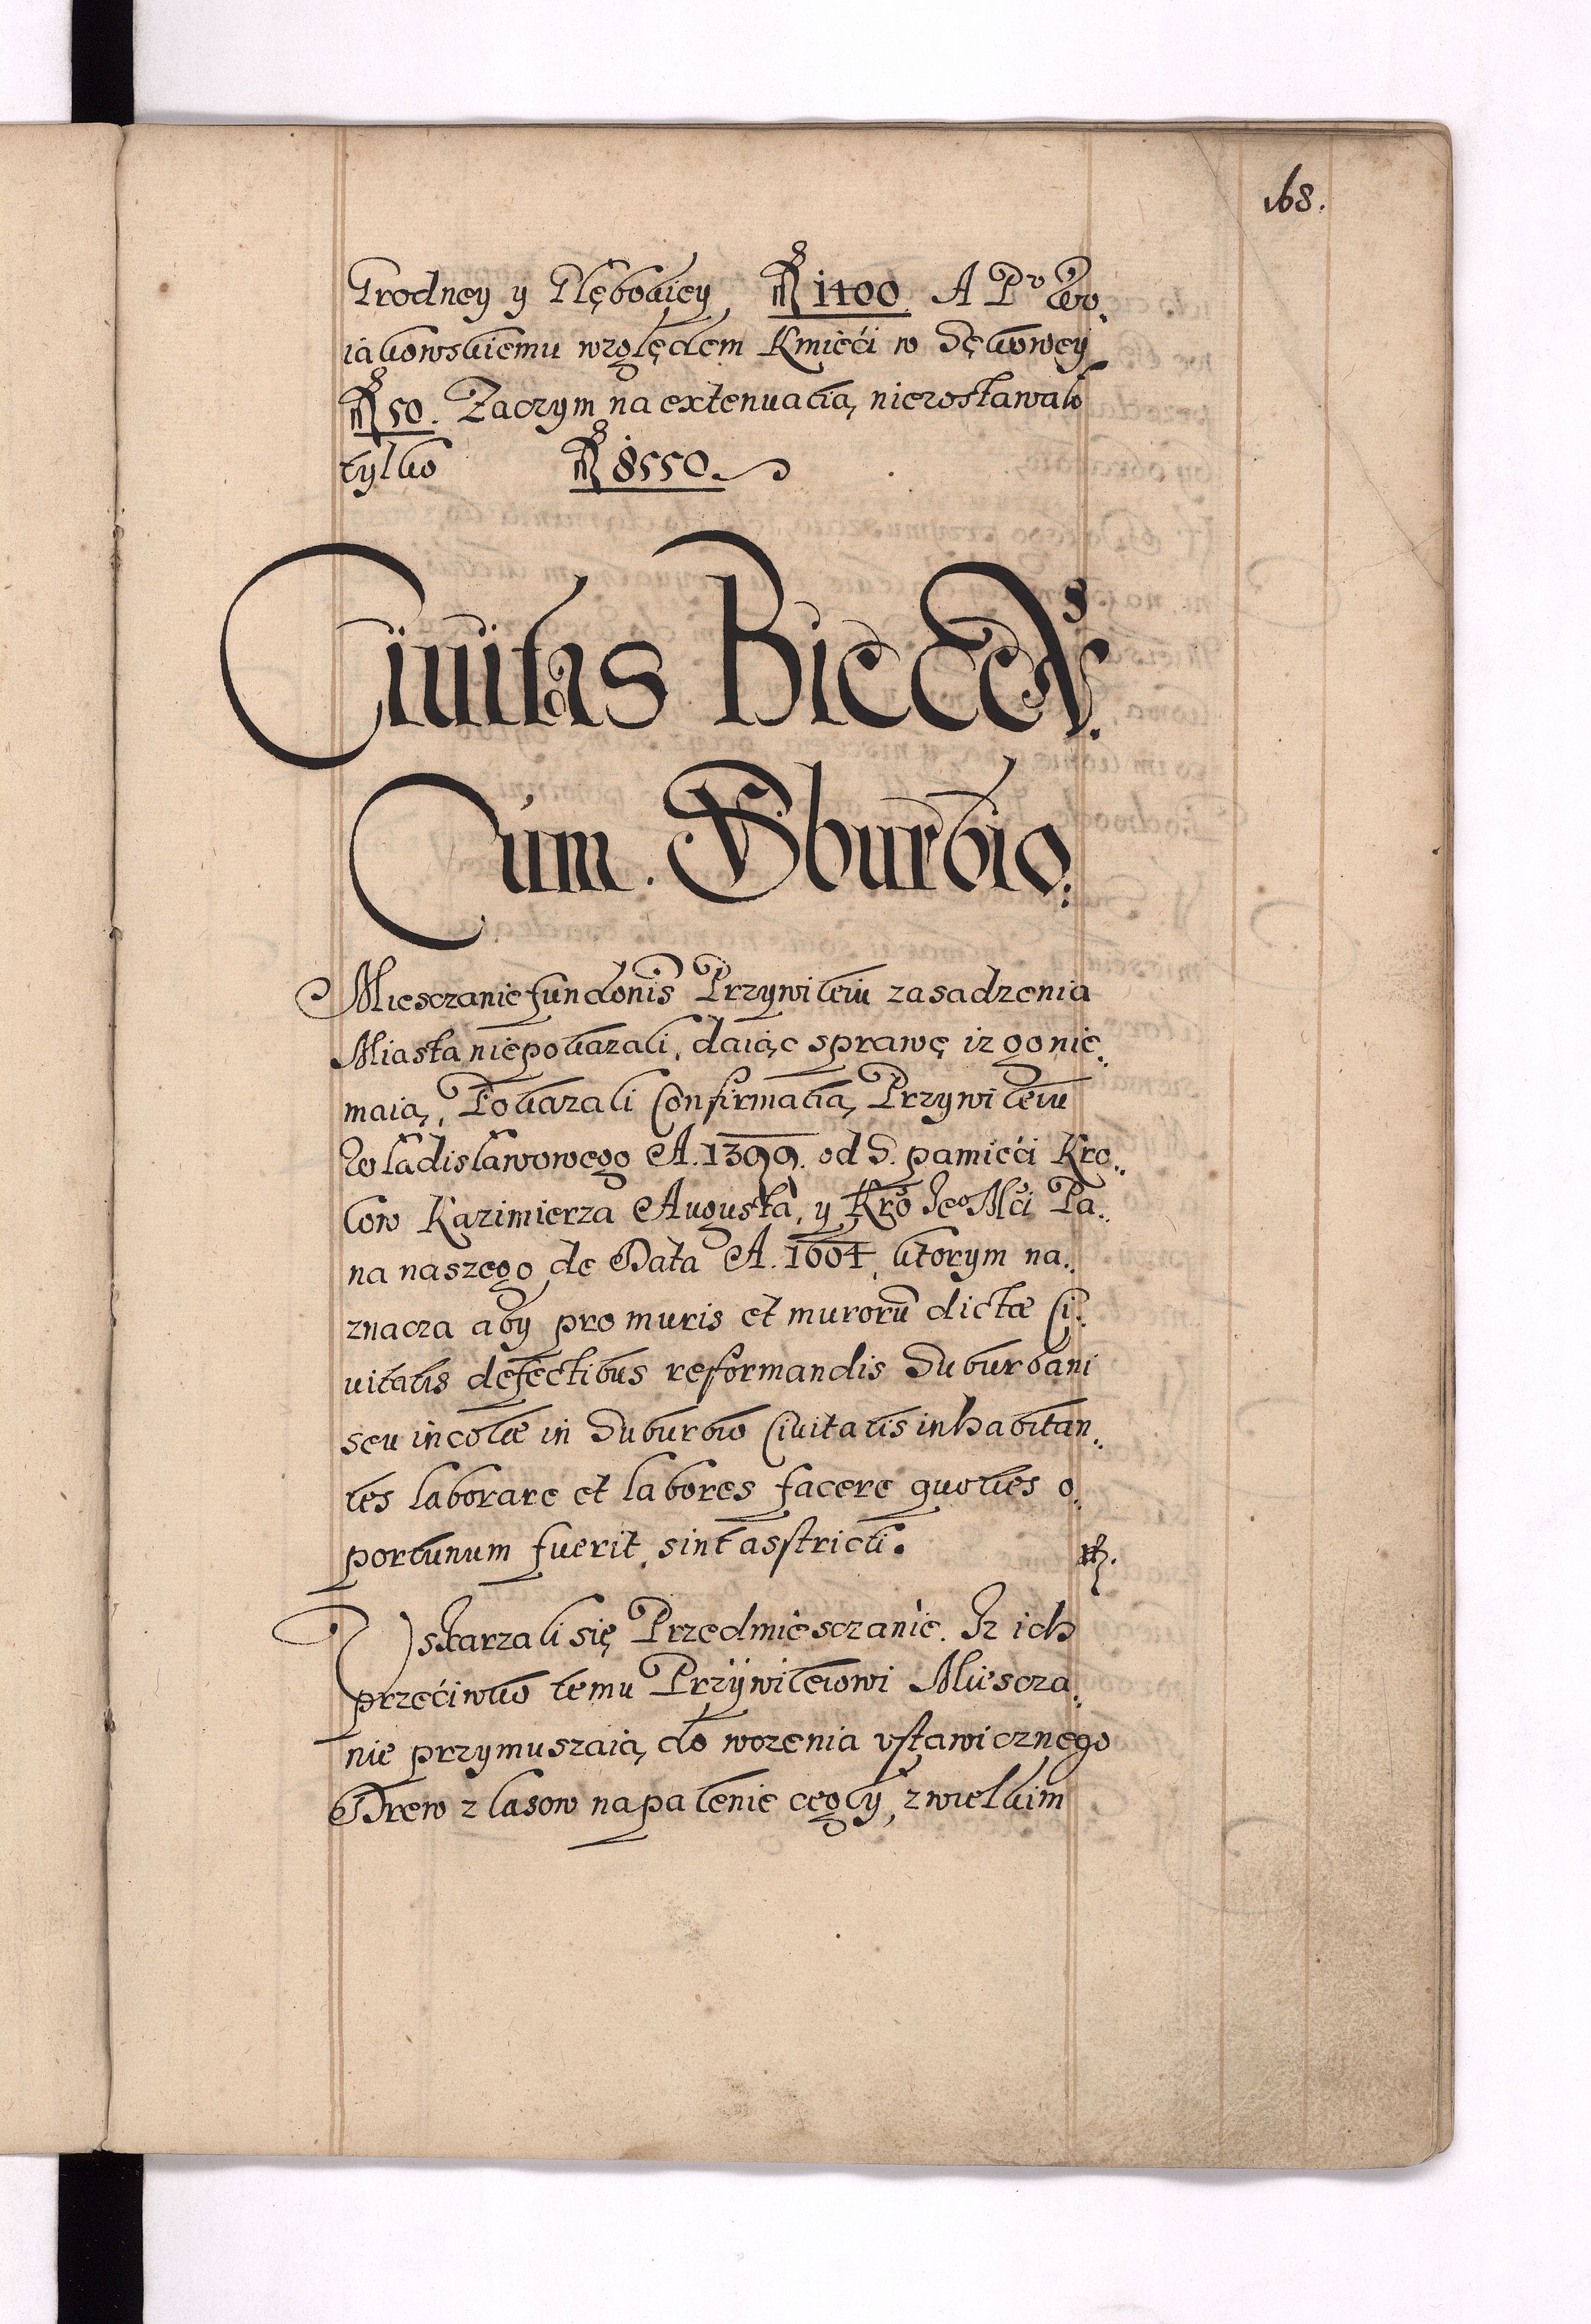 168.
Grodney y Głębokiey, 1400 A Pᵒ Wo„
iakowskiemu względem Kmieći w Sękowey
50. Zaczym na extenuatią niezostawało
tylko 8550.
Ciuitas Biecen̄s.
Cum. Sburbio.
Miesczanie fundōnis Przywileiu zasadzenia
Miasta niepokazali, daiąc sprawę iz go nie„
maią, Pokazali Confirmatią Przywileiu
Władisławowego A. 1399. od S. pamieći Kro„
low Kazimierza Augusta, y Kro Ieº Mći Pa„
na naszego de Data A. 1604, ktorym na„
znacza aby pro muris et murorū dictæ Ci„
uitatis defectibus reformandis Suburbani
seu incolæ in Suburbio Ciuitatis inhabitan„
tes laborare et labores facere quoties o„
portunum fuerit, sint asstricti.
Vskarzali się Przedmiesczanie. Iz ich
przećiwko temu Przÿwileiowi Miescza„
nie przymuszaią do wozenia vstawicznego
Drew z lasow na palenie cegły, z wielkim